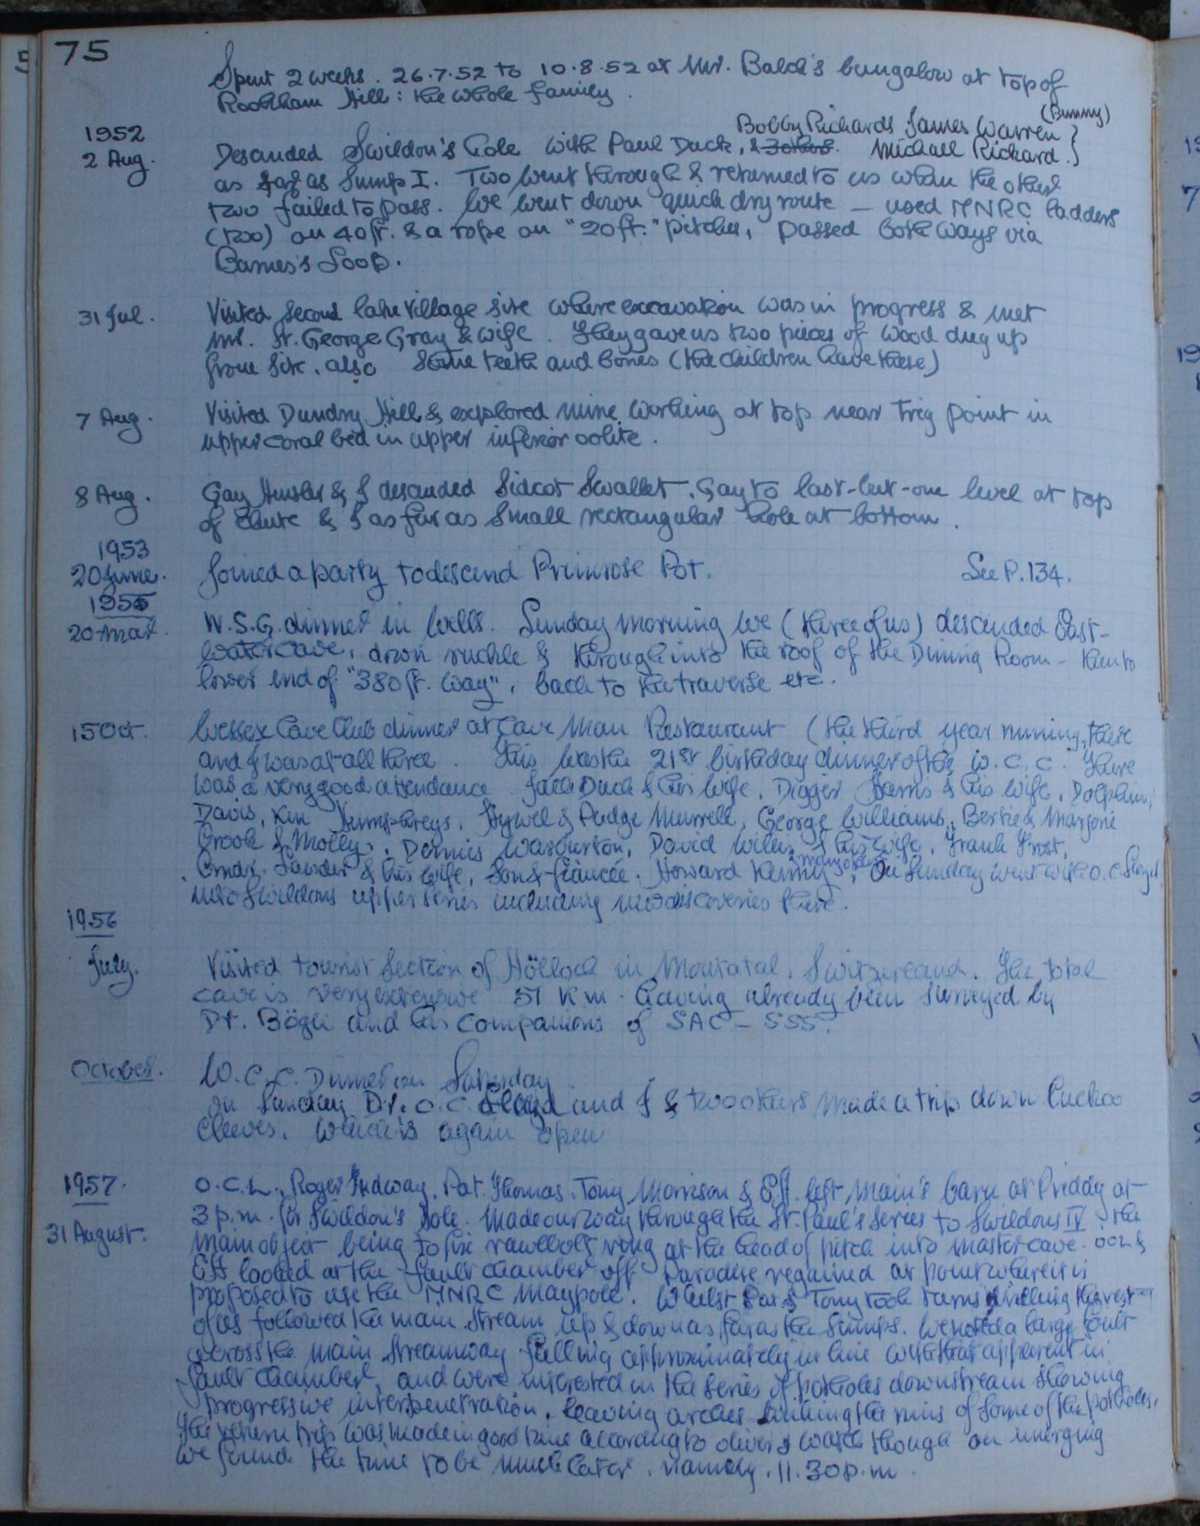 75
Spent 2 weeks. 26.7.52 to 10.8.52 at Mr. Balch's bungalow at top of
Rookham Hill: the whole family.
1952
(Bunny)
Bobby Richards James Warren }
2 Aug. Descended Swildon's Hole with Paul Duck, & 3 others. Michael Richard. }
as far as Sump I. Two went through & returned to us when the other
two failed to pass. We went down quick dry route – used MNRC ladders
(two) on 40 ft. & a rope on "20 ft." pitches, passed both ways via
Barnes's Loop.
31 Jul. Visited second lake village site where excavation was in progress & met
Mr. St. George Gray & wife. They gave us two pieces of wood dug up
from site, also some teeth and bones (the children have these)
7 Aug. Visited Dundry Hill & explored mine working at top near Trig point in
upper coral bed in upper inferior oolite.
8 Aug. Gay & I descended Sidcot Swallet. Gay to last-but-one level at top
of chute & I as far as small rectangular hole at bottom.
1953
20 June. Joined a party to descend Primrose Pot. See P.134.
1955
20 Mar. W.S.G. dinner in Wells. Sunday morning we (three of us) descended East-
water cave, down ruckle & through into the roof of the Dining Room – then to
lower end of "380 ft. Way", back to the traverse etc.
15 Oct. Wessex Cave Club dinner at Cave Man Restaurant (the third year running, there
and I was at all three. This was the 21st birthday dinner of the W.C.C. There
was a very good attendance. Jack Duck & his wife, Digger Harris & his wife, Dolphin,
Davis, Ken Humphreys, Hywel & Pudge Murrell, George Williams, Bertie & Marjorie
Crook & Molly, Dennis Warburton, David Willis & his wife, Frank Frost,
& his wife, son & fiancée. Howard Kenny & many others. On Sunday went with O.C. Lloyd
into Swildons upper series including new discoveries there.
1956
July. Visited tourist section of Hölloch in Muotatal, Switzerland. The total
cave is very extensive 51 Km. having already been surveyed by
Dr. Bögli and his companions of SAC – SSS.
October. W.C.C. Dinner on Saturday.
On Sunday Dr. O.C. Lloyd and I & two others made a trip down Cuckoo
Cleeves, which is again open
1957.
O.C.L., Roger , Pat Thomas, Tony Morrison & Off. left Main's barn at Priddy at
31 August. 3 p.m. for Swildon's Hole. Made our way through the St. Paul's Series to Swildons IV, the
main object being to fix rawlbolt ring at the head of pitch into master cave. OCL &
looked at the fault chamber off Paradise regained at point where it is
proposed to use the MNRC maypole. Whilst Pat & Tony took turns drilling the rest
of us followed the main stream up & down as far as the Sumps. We noted a large fault
across the main streamway falling approximately in line with that apparent in
fault chamber, and were interested in the series of potholes downstream showing
progressive interpenetration, leaving arches linking the rims of some of the potholes.
The return trip was made in good time according to Oliver's watch though on emerging
we found the time to be much later, namely, 11.30 p.m.